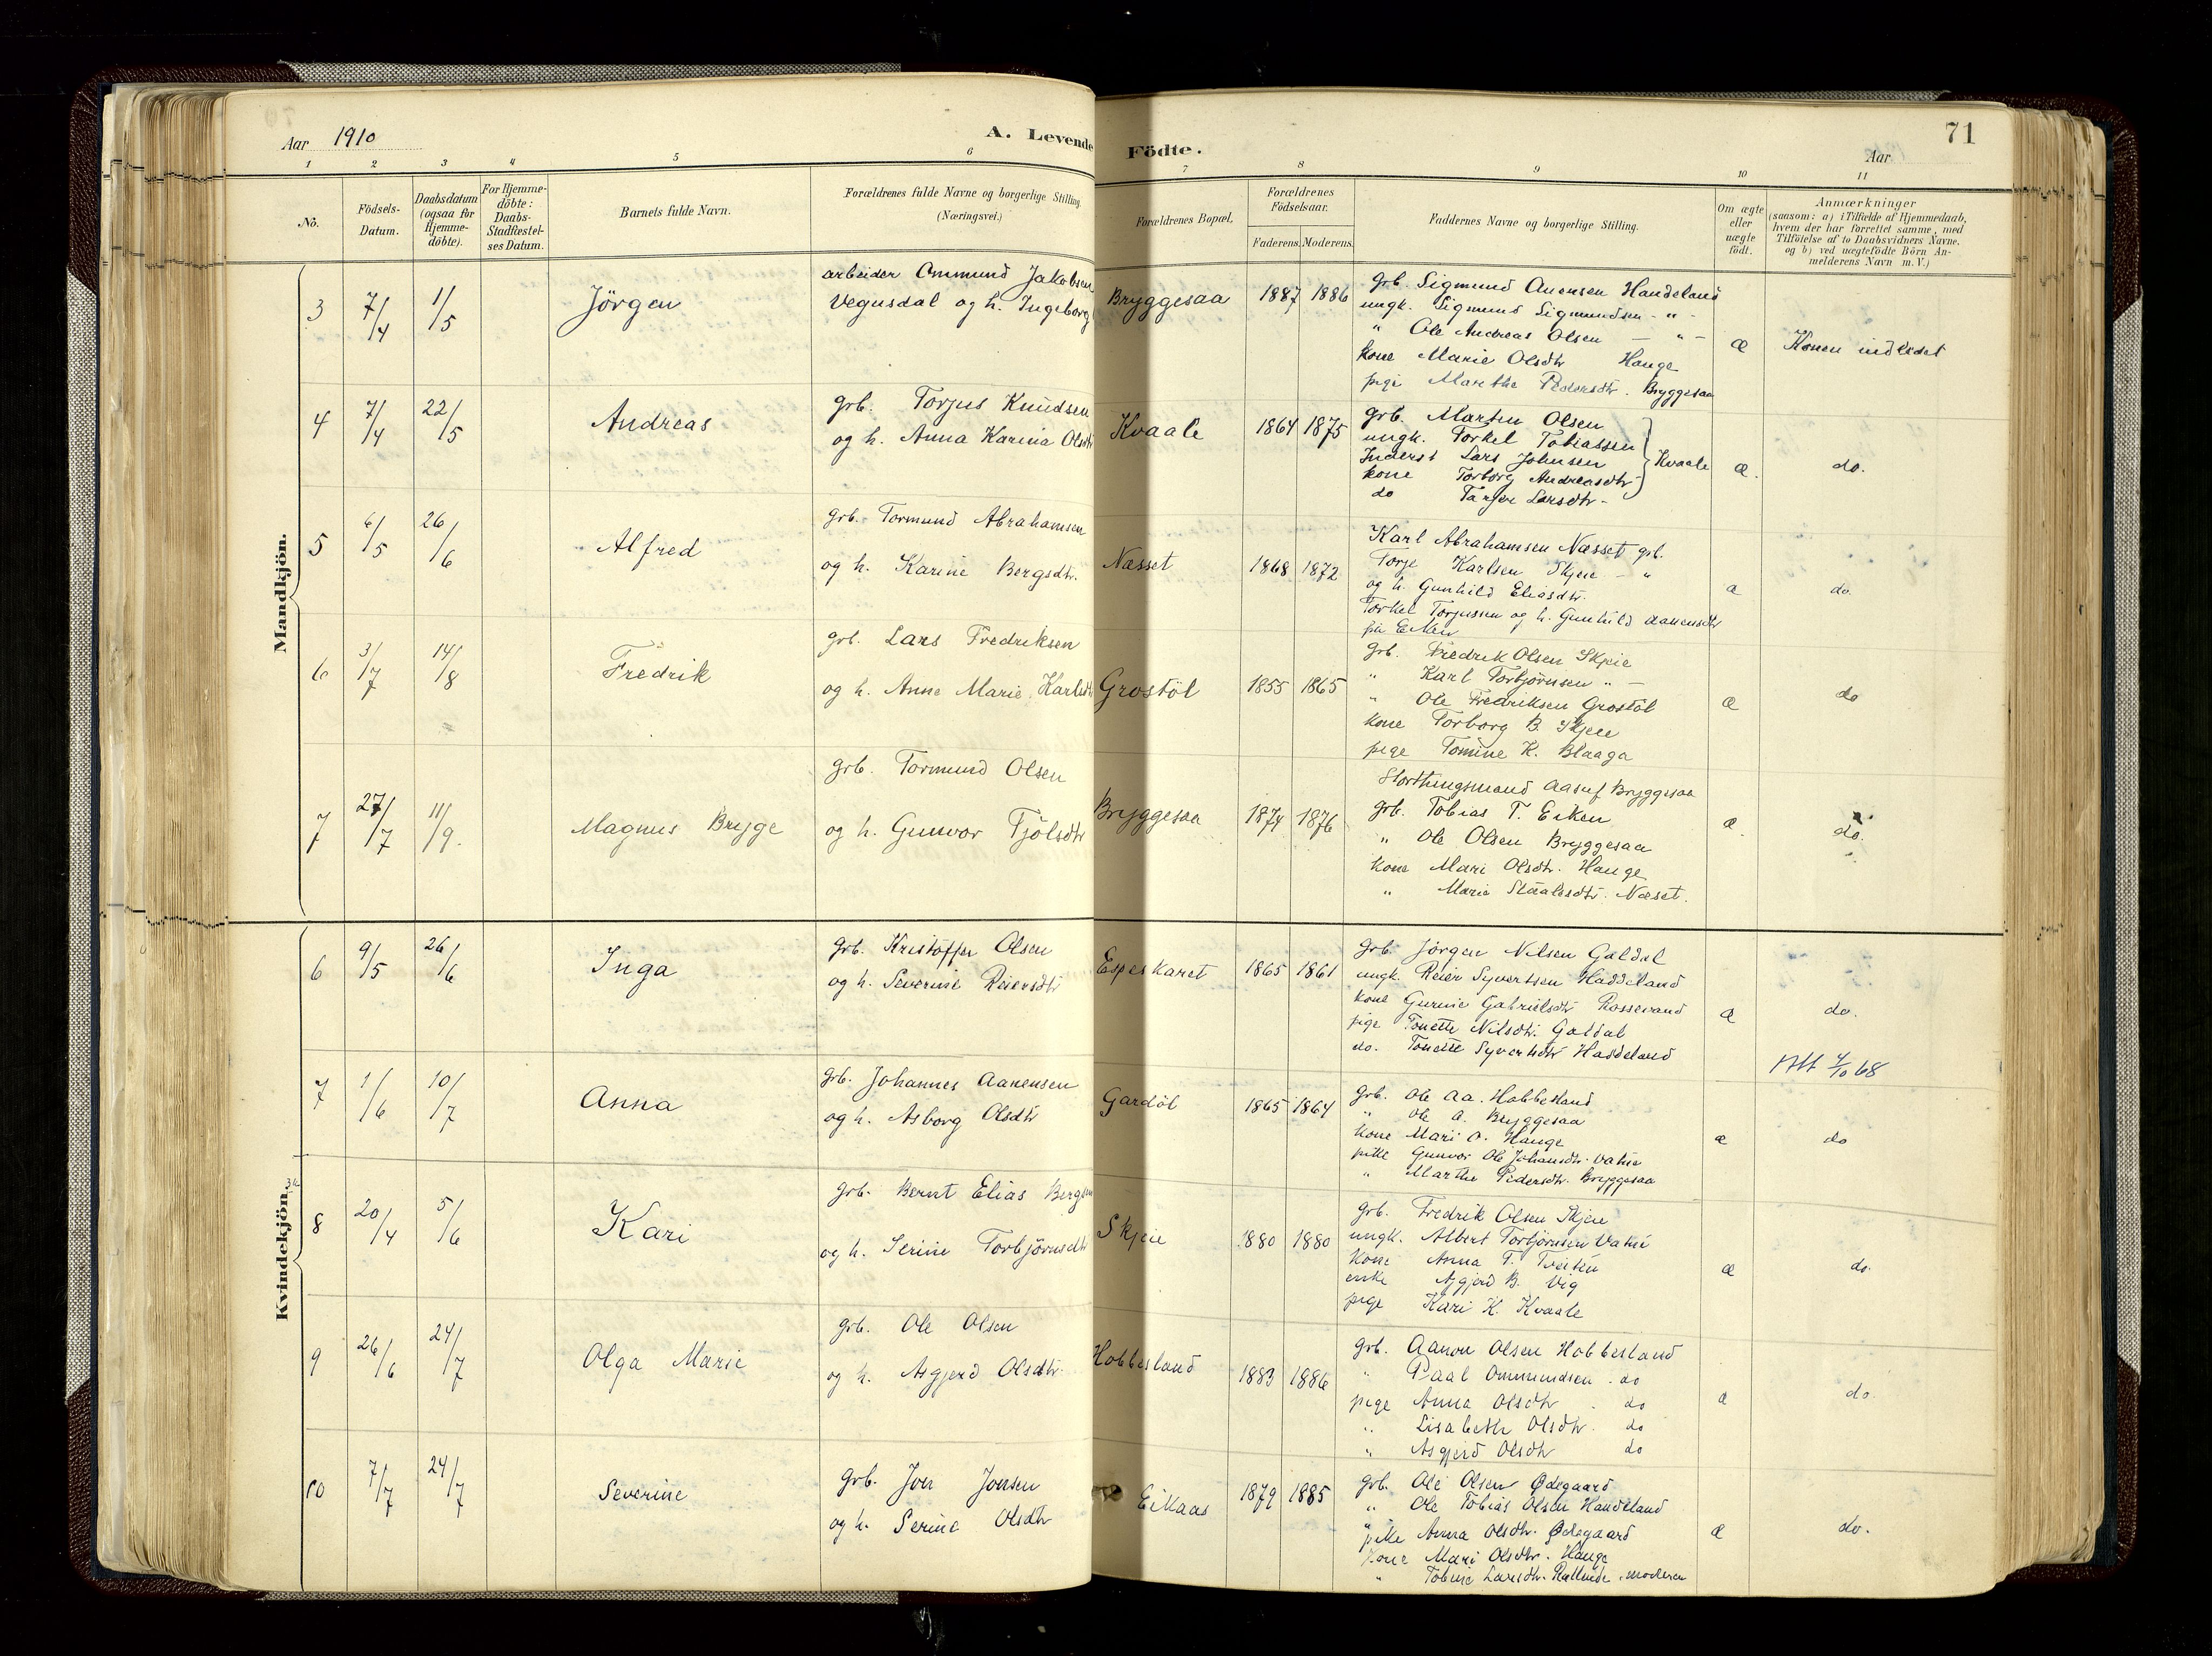 71
Aar 1910
A. Levende Födte.
Aar
1 2 3 4 5 6 7 8 9 10 11
No.
Födsels-
Datum.
Daabsdatum
(ogsaa for
Hjemme-
döbte).
For Hjemme-
döbte:
Daabs-
Stadfæstel-
ses Datum.
Barnets fulde Navn.
Forældrenes fulde Navne og borgerlige Stilling.
(Næringsvei.)
Forældrenes Bopæl.
Forældrenes
Födselsaar.
Faderens. Moderens.
Faddernes Navne og borgerlige Stilling.
Om ægte
eller
uægte
födt.
Anmærkninger
(saasom: a) i Tilfælde af Hjemmedaab,
hvem der har forrettet samme, med
Tilföielse af to Daabsvidners Navne.
og b) ved uægtefödte Börn An-
melderens Navn m. V.)
Mandkjön.
3 7/4 1/5 Jörgen
arbeider Ommund Jakobsen
Vegusdal og h. Ingeborg
Bryggesaa 1887 1886
grb. Sigmund Anensen Handeland
ungk. Sigmund Sigmundsen - " -
" Ole Andreas Olsen - " -
kone Marie Olsdtr Hauge
pige Marthe Pedersdtr. Bryggesaa
Æ Konen indledet
4 7/4 22/5 Andreas
grb. Torjus Knudsen
og h. Anna Karina Olsdtr
Kvaale 1864 1875
grb. Martin Olsen
ungk. Torkel Tobiassen
Inderst Lars Johnsen
kone Torborg Andreasdtr
do Tarjer Larsdtr -
Kvaale
Æ. do.
5 6/5 26/6 Alfred
grb. Tormund Abrahamsen
og h. Karine Bergsdtr.
Næsset 1868 1872
Karl Abrahamsen Næsset grb.
Torje Karlsen Skjeie - "
og h. Gunhild Eliasdtr.
Torkel Torjussen og h. Gunhild Aanensdtr
paa Eiken
æ do.
6 3/7 14/8 Fredrik
grb. Lars Fredriksen
og h. Anne Marie Karlsdtr
Grostöl 1855 1865
grb. Fredrik Olsen Skjeie
" Karl Torbjörnsen " -
" Ole Fredriksen Grostöl
kone Torborg B. Skjeie
pige Tomine K. Blaaga
Æ do
7 27/7 11/9. Magnus Brygge
grb. Tormund Olsen
og h. Gunvor Tjölsdtr
Bryggesaa 1874 1876
Storthingsmand Aasuf Bryggesaa
grb. Tobias T. Eiken
" Ole Olsen Bryggesaa
kone Mari Olsdtr. Hauge
" Marie Staalesdtr. Næset.
æ. do.
Kvindekjön.
6 9/5 26/6 Inga
grb. Kristoffer Olsen
og h. Severine Reiersdtr
Espeskaret 1865 1861
grb. Jörgen Nilsen Galdal
ungk. Reier Syvertsen Haddeland
kone Gurine Gabrielsdtr Rossevand
pige Tonette Nilsdtr. Galdal
do. Tonette Syvertsdtr Haddeland
Æ do.
Att 4/10 68
7 1/6 10/7 Anna
grb. Johannes Aanensen
og h. Asborg Olsdtr
Gardöl 1865 1864
grb. Ole Aa. Hobbesland
" Ole O. Bryggesaa
kone Mari O. Hauge
pike Gunvor Ole Johansdtr. Vatne
" Marthe Pedersdtr. Bryggesaa
æ do
8 20/4 5/6 Kari
grb. Bernt Elias Bergsen
og h. Serine Torbjörnsdtr
Skjeie 1880 1880
grb. Fredrik Olsen Skjeie
ungk. Albert Torbjörnsen Vatne
kone Anna T. Tveiten
enke Asgjerd B. Vig
pige Kari K. Kvaale
Æ do.
9 26/6 24/7 Olga Marie
grb. Ole Olsen
og h. Asgjerd Olsdtr
Hobbesland 1883 1886
grb. Aanon Olsen Hobbesland
" Paal Ommundsen . do
pige Anna Olsdtr . do
" Lisabeth Olsdtr. do
" Asgjerd Olsdtr do
æ do.
10 7/7 24/7 Severine
grb. Jon Jonsen
og h. Serine Olsdtr
Eikaas 1879 1885
grb. Ole Olsen Ødegaard
" Ole Tobias Olsen Handeland
pike Anna Olsdtr. Ødegaard
kone Mari Olsdtr. Hauge
" Tobine Larsdtr. moderen
Æ do.